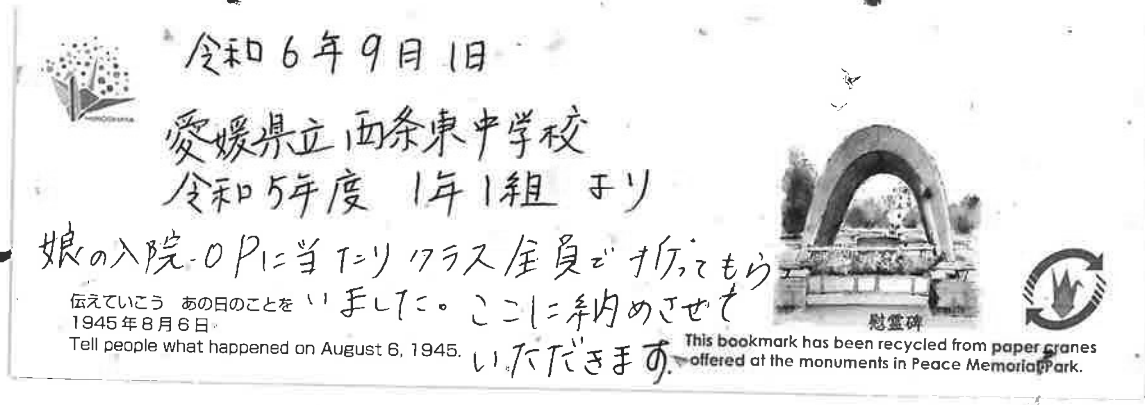 令和6年9月1日
愛媛県立西条東中学校
令和5年度 1年1組 より
娘の入院・OPに当たりクラス全員で折ってもら
いました。ここに納めさせて
いただきます。
伝えていこう あの日のことを
1945年8月6日
Tell people what happened on August 6, 1945.
慰霊碑
This bookmark has been recycled from paper cranes
offered at the monuments in Peace Memorial Park.